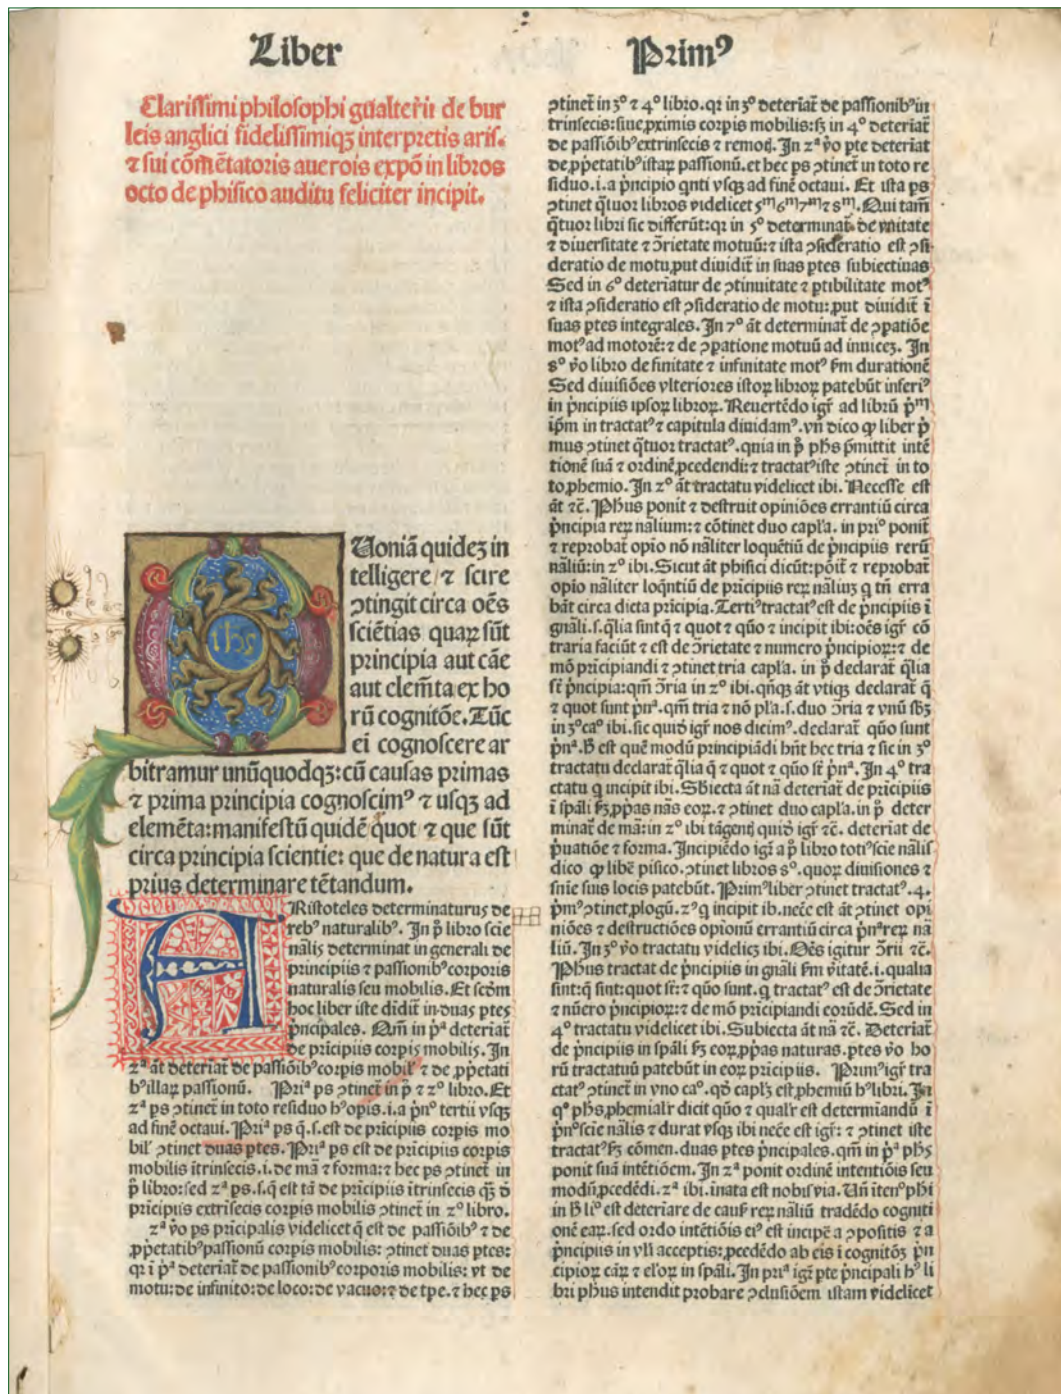 Liber Primꝰ
Clarissimi philosophi gualteri de bur
leis anglici fidelissimiqʒ interpretis aris.
⁊ sui cōmētatoris auerois expō in libros
octo de phisico auditu feliciter incipit.
ihs
Uoniā quideʒ in
telligere ⁊ scire
ↄtingit circa oēs
sciētias quaꝝ sūt
principia aut cāe
aut elemēta ex ho
rū cognitōe. Tūc
ei cognoscere ar
bitramur unūquodqʒ: cū causas primas
⁊ prima principia cognoscimꝰ ⁊ usqʒ ad
elemēta: manifestū quidē quot ⁊ que sūt
circa principia scientie: que de natura est
prius determinare tētandum.
ARistoteles determinaturus de
rebꝰ naturalibꝰ. In p̄ libro scie
nālis determinat in generali de
principiis ⁊ passionibꝰ corporis
naturalis seu mobilis. Et scdm
hoc liber iste diidit in duas ptes
p̄ncipales. Qm̄ in pª deteriat̄
de pricipiis corpis mobilis. In
zª āt deteriat̄ de passiōibꝰ corpis mobilʼ ⁊ de ꝓpetati
bꝰ illaꝝ passionū. Priª ps ↄtinet̄ in p̄ ⁊ zº libro. Et
zª ps ↄtinet̄ in toto residuo hꝰ opis. i. a pn̄º tertii vsqʒ
ad finē octaui. Priª ps q̄. s. est de pricipiis corpis mo
bilʼ ↄtinet duas ptes. Priª ps est de pricipiis corpis
mobilis ītrinsecis. i. de mā ⁊ forma: ⁊ hec ps ↄtinet̄ in
p̄ libro: sed zª ps. s. q̄ est tā de pricipiis ītrinsecis qʒ̄ d̄
pricipiis extrīsecis corpis mobilis ↄtinet̄ in zº libro.
zª v̄o ps pricipalis videlicet q̄ est de passiōibꝰ ⁊ de
ꝓpetatibꝰ passionū corpis mobilis: ↄtinet duas ptes:
qr ī pª deteriat̄ de passionibꝰ corporis mobilis: vt de
motu: de infinito: de loco: de vacuo: ⁊ de tpe. ⁊ hec ps
ↄtinet̄ in 3º ⁊ 4º libro. qr in 3º deteriat̄ de passionibꝰ in
trinsecis: siue ꝓximis corpis mobilis: sʒ in 4º deteriat̄
de passiōibꝰ extrinsecis ⁊ remotꝭ. In zª v̄o pte deteriat̄
de ꝓpetatibꝰ istaꝝ passionū. et hec ps ↄtinet̄ in toto re
siduo. i. a p̄ncipio qnti vsqʒ ad finē octaui. Et ista ps
ↄtinet q̄tuor libros videlicet 5ᵐ 6ᵐ 7ᵐ ⁊ 8ᵐ. Qui tam̄
q̄tuor libri sic differūt: qr in 5º determinat̄ de vnitate
⁊ diuersitate ⁊ ↄ̄rietate motuū: ⁊ ista ↄsideratio est ↄsi
deratio de motu ꝓut diuidit̄ in suas ptes subiectiuas
Sed in 6º deteriatur de ↄtinuitate ⁊ ptibilitate motꝰ
⁊ ista ↄsideratio est ↄsideratio de motu: ꝓut diuidit̄ ī
suas ptes integrales. In 7º āt determinat̄ de ↄpatiōe
motꝰ ad motorē: ⁊ de ↄpatione motuū ad inuiceʒ. In
8º v̄o libro de finitate ⁊ infinitate motꝰ fm durationē
Sed diuisiōes vlteriores istoꝝ libroꝝ patebūt inferiꝰ
in p̄ncipiis ipsoꝝ libroꝝ. Reuertēdo igr̄ ad librū p̄ᵐ
ipm̄ in tractatꝰ ⁊ capitula diuidamꝰ. vn̄ dico ꝙ liber p̄
mus ↄtinet q̄tuor tractatꝰ. quia in p̄ phs p̄mittit intē
tionē suā ⁊ ordinē ꝓcedendi: ⁊ tractatꝰ iste ↄtinet̄ in to
to ꝓhemio. In zº āt tractatu videlicet ibi. Necesse est
āt ⁊c̄. Phus ponit ⁊ destruit opiniōes errantiū circa
p̄ncipia reꝝ nālium: ⁊ cōtinet duo capl'a. in priº ponit̄
⁊ reprobat̄ opio nō nāliter loquētiū de p̄ncipiis rerū
nāliū: in zº ibi. Sicut āt phisici dicūt: pōit̄ ⁊ reprobat̄
opio nāliter loqn̄tiū de pricipiis reꝝ naliuʒ q tn̄ erra
bāt circa dicta pricipia. Tertiꝰ tractatꝰ est de p̄ncipiis ī
gnāli. s. q̄lia sint q̄ ⁊ quot ⁊ qūo ⁊ incipit ibi: oēs igr̄ cō
traria faciūt ⁊ est de ↄ̄rietate ⁊ numero p̄ncipioꝝ: ⁊ de
mō pricipiandi ⁊ ↄtinet tria capl'a. in p̄ declarat̄ q̄lia
st̄ p̄ncipia: qm̄ ↄ̄ria in zº ibi. qn̄qʒ āt vtiqʒ declarat̄ q̄
⁊ quot sunt pn̄ª. qm̄ tria ⁊ nō pl'a. s. duo ↄ̄ria ⁊ vnū sbʒ
in 3º caº ibi. sic quid igr̄ nos dicimꝰ. declarat̄ qūo sunt
pn̄ª. B̄ est quē modū principiādi hn̄t hec tria ⁊ sic in 3º
tractatu declarat̄ q̄lia q̄ ⁊ quot ⁊ qūo st̄ pn̄ª. In 4º tra
ctatu q incipit ibi. Sbiecta āt nā deteriat̄ de pricipiis
ī spāli sʒ ꝓpas nās eoꝝ. ⁊ ↄtinet duo capl'a. in p̄ deter
minat̄ de mā: in zº ibi tāgentꝭ quid igr̄ ⁊c̄. deteriat de
p̄uatiōe ⁊ forma. Incipiēdo igr̄ a p̄ libro totiꝰ scie nālis
dico ꝙ libē pisico. ↄtinet libros 8º. quoꝝ diuisiones ⁊
snīe suis locis patebūt. Primꝰ liber ↄtinet tractatꝰ. 4.
p̄mꝰ ↄtinet ꝓlogū. zꝰ q incipit ib. necē est āt ↄtinet opi
niōes ⁊ destructiōes opionū errantiū circa pn̄ª reꝝ na
liū. In 3º v̄o tractatu videliceʒ ibi. Oēs igitur ↄ̄rii ⁊c̄.
Phus tractat de p̄ncipiis in gnāli fm vitatē. i. qualia
sint: q̄ sint: quot st̄: ⁊ qūo sunt. q tractatꝰ est de ↄ̄rietate
⁊ nūero p̄ncipioꝝ: ⁊ de mō pricipiandi eorūdē. Sed in
4º tractatu videlicet ibi. Subiecta āt nā ⁊c̄. Deteriat̄
de p̄ncipiis in spāli sʒ eoꝝ ꝓpas naturas. ptes v̄o ho
rū tractatuū patebūt in eoꝝ pricipiis. Primꝰ igr̄ tra
ctatꝰ ↄtinet̄ in vno caº. qd̄ caplʒ est ꝓhemiū hꝰ libri. In
qº phs ꝓhemialr̄ dicit qūo ⁊ qualr̄ est determiandū ī
pn̄º scie nālis ⁊ durat vsqʒ ibi necē est igr̄: ⁊ ↄtinet iste
tractatꝰ sʒ cōmen. duas ptes p̄ncipales. qm̄ in pª phs
ponit suā intētiōem. In zª ponit ordinē intentiōis seu
modū ꝓcedēdi. zª ibi. inata est nobis via. Un̄ itenº phi
in B̄ liº est deteriare de causis reꝝ nāliū tradēdo cogniti
onē eaꝝ. sed ordo intētiōis eiꝰ est incipē a ↄpositis ⁊ a
p̄ncipiis in vl'i acceptis: ꝓcedēdo ab eis ī cognitōʒ pn̄
cipioꝝ cāꝝ ⁊ el'oꝝ in spāli. In priª igr̄ pte p̄ncipali hꝰ li
bri phus intendit probare ↄclusiōem istam videlicet